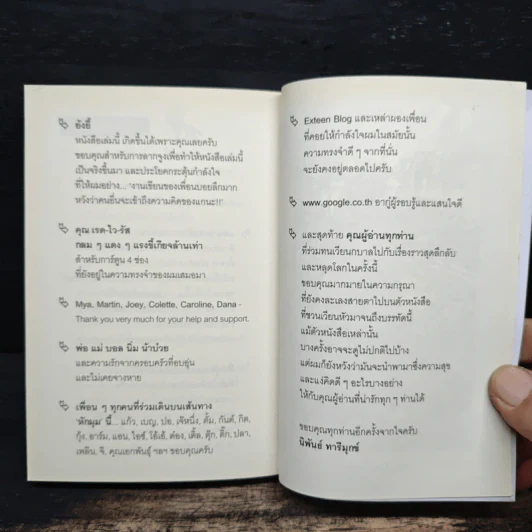 อังยี้
หนังสือเล่มนี้ เกิดขึ้นได้เพราะคุณเลยครับ
ขอบคุณสำหรับการลากจูงเพื่อทำให้หนังสือเล่มนี้
เป็นจริงขึ้นมา และประโยคกระตุ้นกำลังใจ
ที่ให้ผมอย่าง... 'งานเขียนของเพื่อนบอยลึกมาก
หวังว่าคนอื่นจะเข้าถึงความคิดของแกนะ!!'
คุณ เรด-ไว-รัส
กลม ๆ แดง ๆ แรงขี้เกียจล้านเท่า
สำหรับการ์ตูน 4 ช่อง
ที่ยังอยู่ในความทรงจำของผมเสมอมา
Mya, Martin, Joey, Colette, Caroline, Dana -
Thank you very much for your help and support.
พ่อ แม่ บอล นิ่ม น้าป่วย
และความรักจากครอบครัวที่อบอุ่น
และไม่เคยจางหาย
เพื่อน ๆ ทุกคนที่ร่วมเดินบนเส้นทาง
'หักมุม' นี้... แก้ว, เบญ, ปอ, เจ๊หนึ่ง, ตั้ม, กันต์, กิต,
กุ้ง, อาร์ม, แอน, ไอซ์, โอ๋เอ๋, ต่อง, เติ้ล, ตุ๊ก, ติ๊ก, ปลา,
เพลิน, จิ, คุณเอกพันธุ์ ฯลฯ ขอบคุณครับ
Exteen Blog และเหล่าผองเพื่อน
ที่คอยให้กำลังใจผมในสมัยนั้น
ความทรงจำดี ๆ จากที่นั่น
จะยังคงอยู่ตลอดไปครับ
www.google.co.th อากู๋ผู้รอบรู้และแสนใจดี
และสุดท้าย คุณผู้อ่านทุกท่าน
ที่ร่วมทนเวียนกบาลไปกับเรื่องราวสุดลึกลับ
และหลุดโลกในครั้งนี้
ขอบคุณมากมายในความกรุณา
ที่ยังคงละเลงสายตาไปบนตัวหนังสือ
ที่ชวนเวียนหัวมาจนถึงบรรทัดนี้
แม้ตัวหนังสือเหล่านั้น
บางครั้งอาจจะดูไม่ปกติไปบ้าง
แต่ผมก็ยังหวังว่ามันจะนำพามาซึ่งความสุข
และแง่คิดดี ๆ อะไรบางอย่าง
ให้กับคุณผู้อ่านที่น่ารักทุก ๆ ท่านได้
ขอบคุณทุกท่านอีกครั้งจากใจครับ
นิพันธ์ ทารีมุกข์